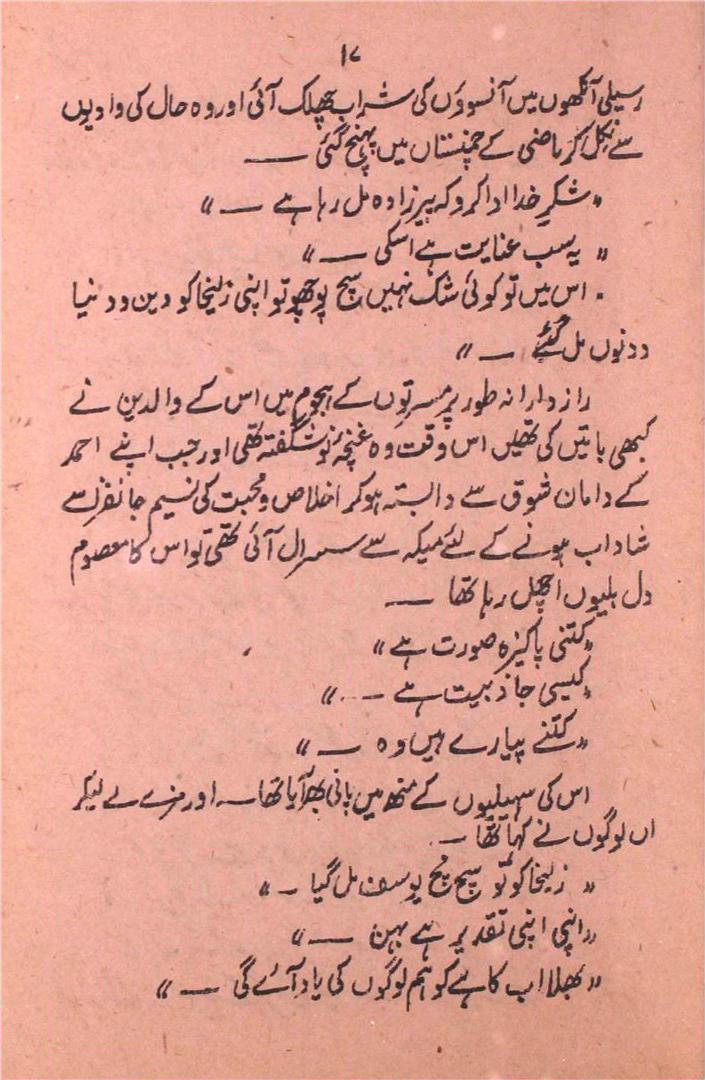 ۱۷
رسیلی آنکھوں میں آنسوؤں کی شراب چھلک آئی اور وہ حال کی وادیوں
سے نکل کر ماضی کے چمنستاں میں پہنچ گئی ——
"شکرِ خدا ادا کرو کہ پیرزادہ مل رہا ہے ——"
"یہ سب عنایت ہے اسکی ——"
"اس میں تو کوئی شک نہیں سچ پوچھو تو اپنی زلیخا کو دین و دنیا
دونوں مل گئے ——"
رازدارانہ طور پر مسرتوں کے ہجوم میں اس کے والدین نے
کبھی باتیں کی تھیں اس وقت وہ غنچۂ نو شگفتہ تھی اور جب اپنے احمد
کے دامان شوق سے وابستہ ہو کر اخلاص و محبت کی نسیم جانفزا سے
شاداب ہونے کے لئے میکہ سے سسرال آئی تھی تو اس کا معصوم
دل بلیوں اچھل رہا تھا ——
"کتنی پاکیزہ صورت ہے"
"کیسی جاذبیت ہے ——"
"کتنے پیارے ہیں وہ ——"
اس کی سہیلیوں کے منھ میں پانی بھر آیا تھا — اور مزے لے لیکر
ان لوگوں نے کہا تھا —
"زلیخا کو تو سچ مچ یوسف مل گیا —"
"اپنی اپنی تقدیر ہے بہن ——"
"بھلا اب کاہے کو ہم لوگوں کی یاد آئے گی ——"